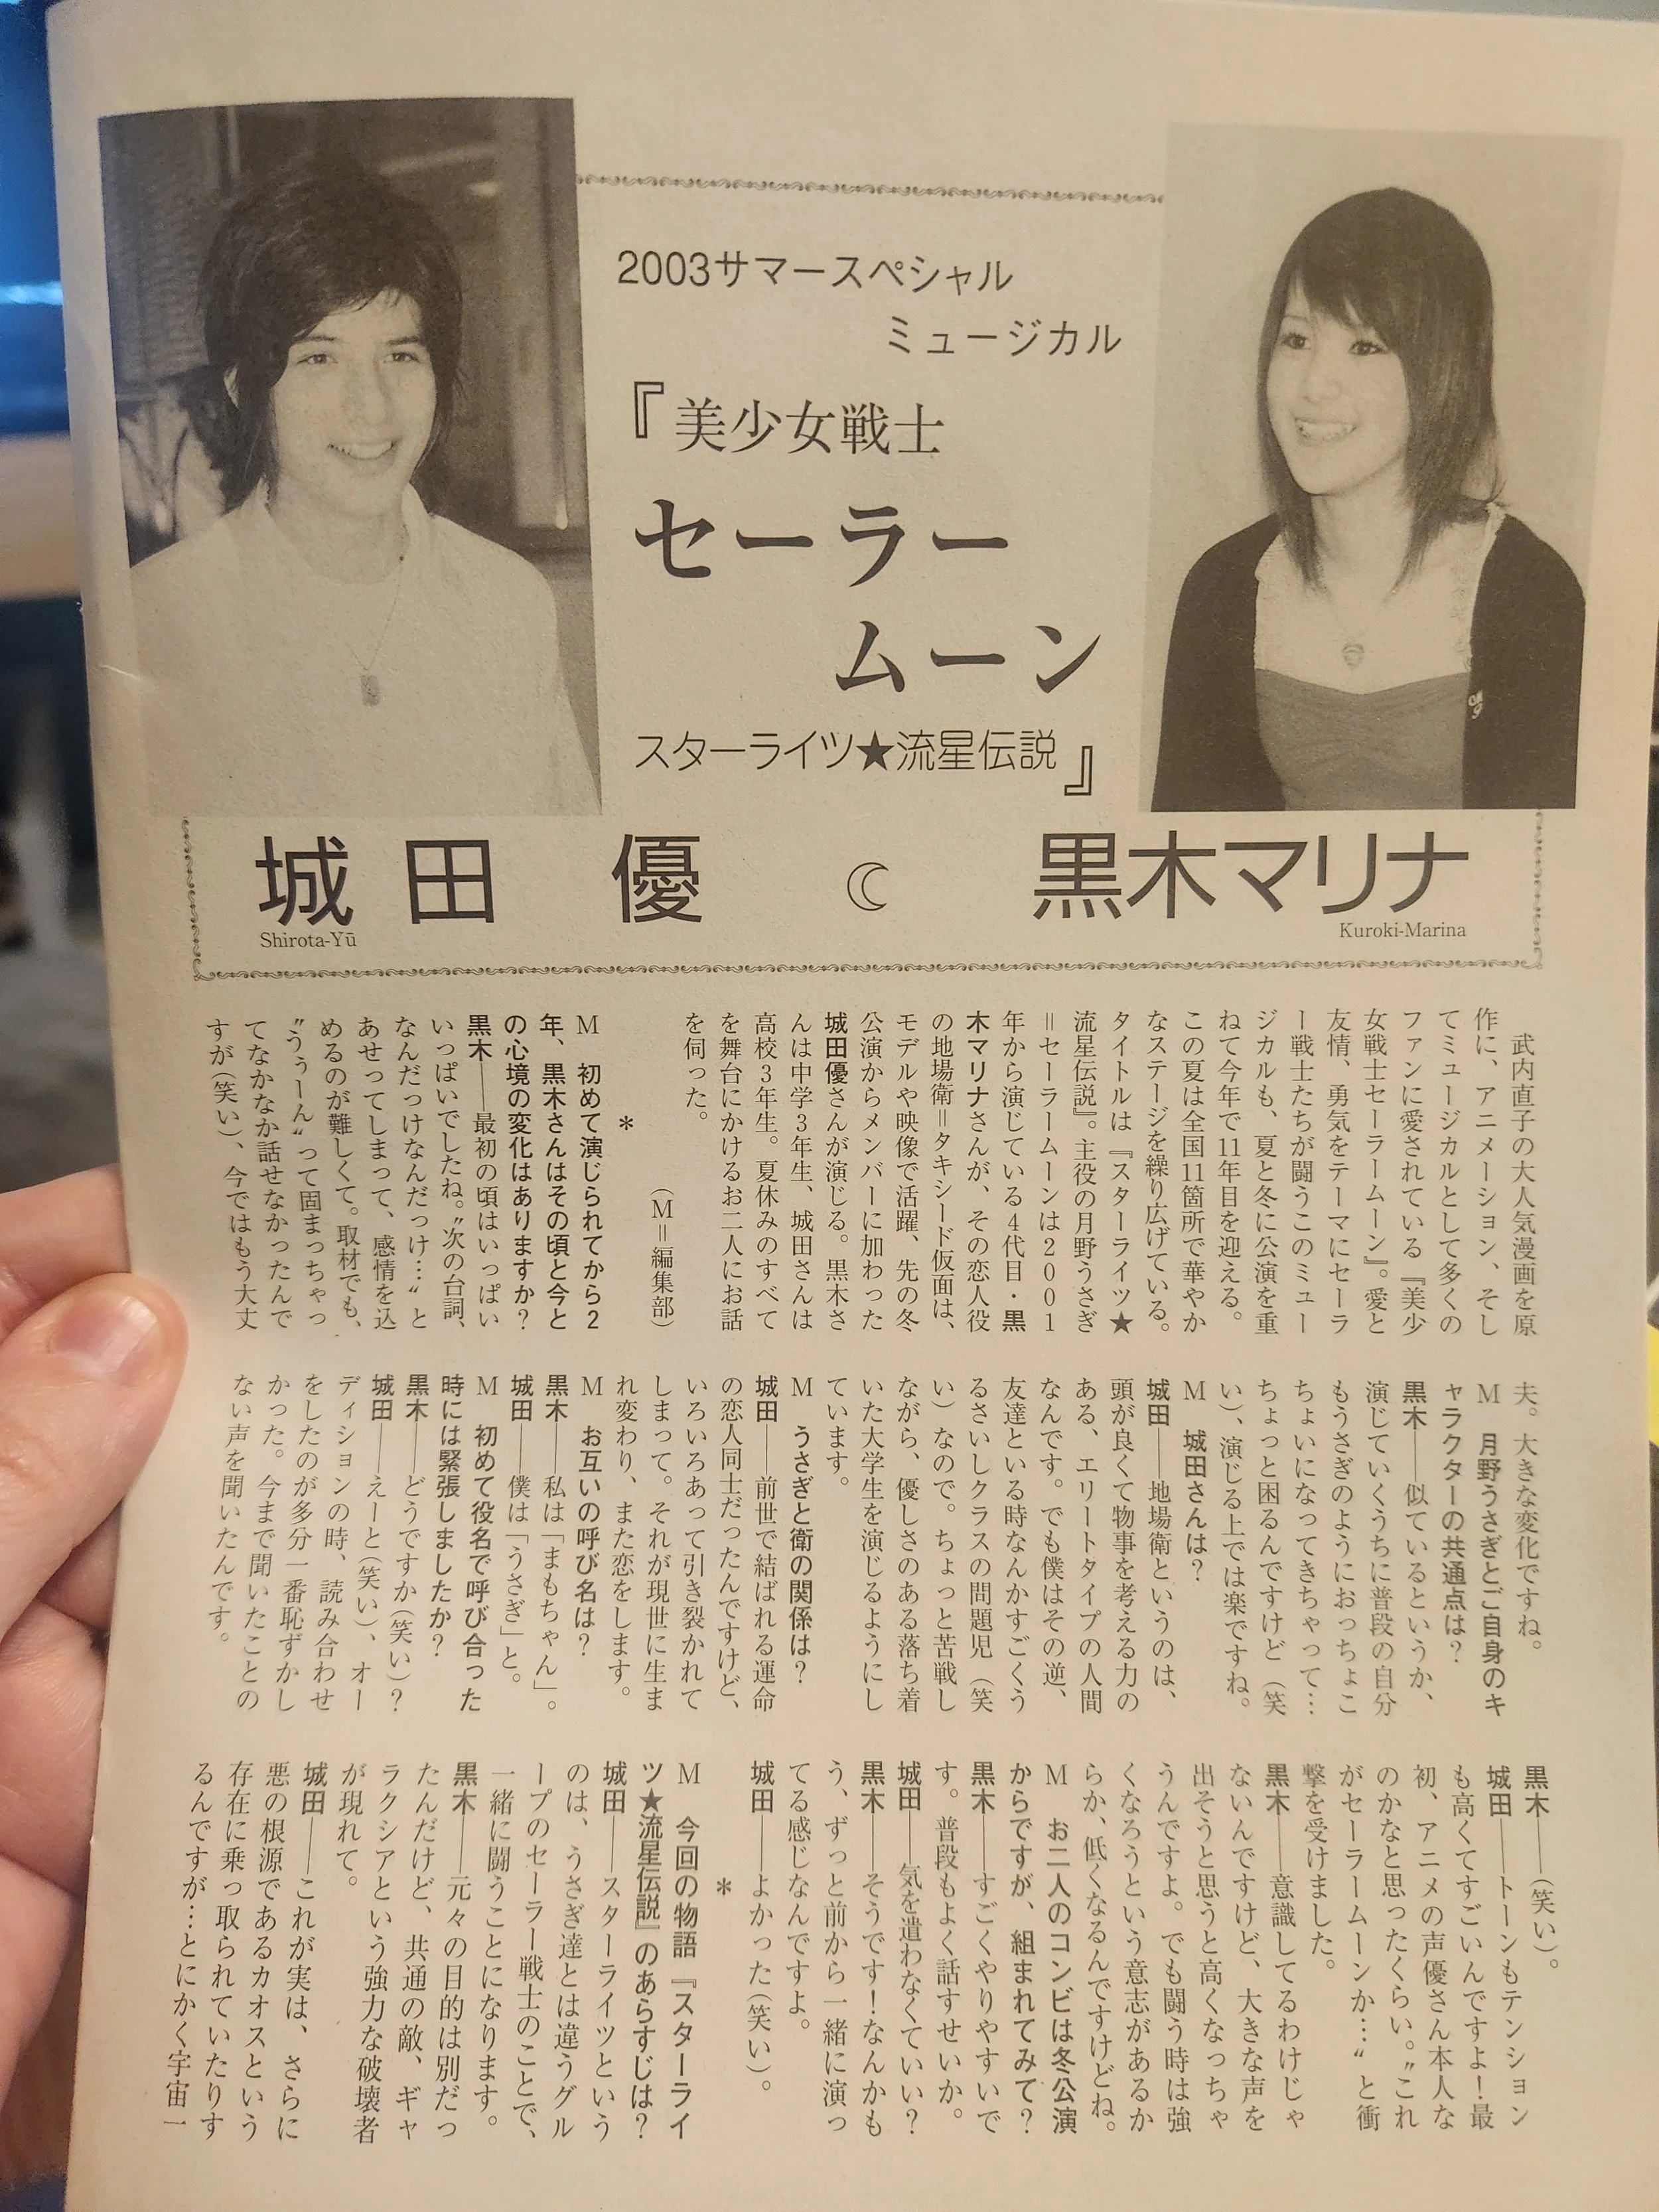 2003サマースペシャル
ミュージカル
『美少女戦士
セーラー
ムーン
スターライツ★流星伝説』
城田 優 ☾ 黒木マリナ
Shirota-Yū
Kuroki-Marina
武内直子の大人気漫画を原
作に、アニメーション、そし
てミュージカルとして多くの
ファンに愛されている『美少
女戦士セーラームーン』。愛と
友情、勇気をテーマにセーラ
ー戦士たちが闘うこのミュー
ジカルも、夏と冬に公演を重
ねて今年で11年目を迎える。
この夏は全国11箇所で華やか
なステージを繰り広げている。
タイトルは『スターライツ★
流星伝説』。主役の月野うさぎ
＝セーラームーンは2001
年から演じている4代目・黒
木マリナさんが、その恋人役
の地場衛＝タキシード仮面は、
モデルや映像で活躍、先の冬
公演からメンバーに加わった
城田優さんが演じる。黒木さ
んは中学3年生、城田さんは
高校3年生。夏休みのすべて
を舞台にかけるお二人にお話
を伺った。
（M＝編集部）
＊
M　初めて演じられてから2
年、黒木さんはその頃と今と
の心境の変化はありますか？
黒木――最初の頃はいっぱい
いっぱいでしたね。〝次の台詞、
なんだっけなんだっけ…〟と
あせってしまって、感情を込
めるのが難しくて。取材でも、
〝うぅーん〟って固まっちゃっ
てなかなか話せなかったんで
すが（笑い）、今ではもう大丈
夫。大きな変化ですね。
M　月野うさぎとご自身のキ
ャラクターの共通点は？
黒木――似ているというか、
演じていくうちに普段の自分
もうさぎのようにおっちょこ
ちょいになってきちゃって…
ちょっと困るんですけど（笑
い）、演じる上では楽ですね。
M　城田さんは？
城田――地場衛というのは、
頭が良くて物事を考える力の
ある、エリートタイプの人間
なんです。でも僕はその逆、
友達といる時なんかすごくう
るさいしクラスの問題児（笑
い）なので。ちょっと苦戦し
ながら、優しさのある落ち着
いた大学生を演じるようにし
ています。
M　うさぎと衛の関係は？
城田――前世で結ばれる運命
の恋人同士だったんですけど、
いろいろあって引き裂かれて
しまって。それが現世に生ま
れ変わり、また恋をします。
M　お互いの呼び名は？
黒木――私は「まもちゃん」。
城田――僕は「うさぎ」と。
M　初めて役名で呼び合った
時には緊張しましたか？
黒木――どうですか（笑い）？
城田――えーと（笑い）、オー
ディションの時、読み合わせ
をしたのが多分一番恥ずかし
かった。今まで聞いたことの
ない声を聞いたんです。
黒木――（笑い）。
城田――トーンもテンション
も高くてすごいんですよ！最
初、アニメの声優さん本人な
のかなと思ったくらい。〝これ
がセーラームーンか…〟と衝
撃を受けました。
黒木――意識してるわけじゃ
ないんですけど、大きな声を
出そうと思うと高くなっちゃ
うんですよ。でも闘う時は強
くなろうという意志があるか
らか、低くなるんですけどね。
M　お二人のコンビは冬公演
からですが、組まれてみて？
黒木――すごくやりやすいで
す。普段もよく話すせいか。
城田――気を遣わなくていい？
黒木――そうです！なんかも
う、ずっと前から一緒に演っ
てる感じなんですよ。
城田――よかった（笑い）。
＊
M　今回の物語『スターライ
ツ★流星伝説』のあらすじは？
城田――スターライツという
のは、うさぎ達とは違うグル
ープのセーラー戦士のことで、
一緒に闘うことになります。
黒木――元々の目的は別だっ
たんだけど、共通の敵、ギャ
ラクシアという強力な破壊者
が現れて。
城田――これが実は、さらに
悪の根源であるカオスという
存在に乗っ取られていたりす
るんですが…とにかく宇宙一